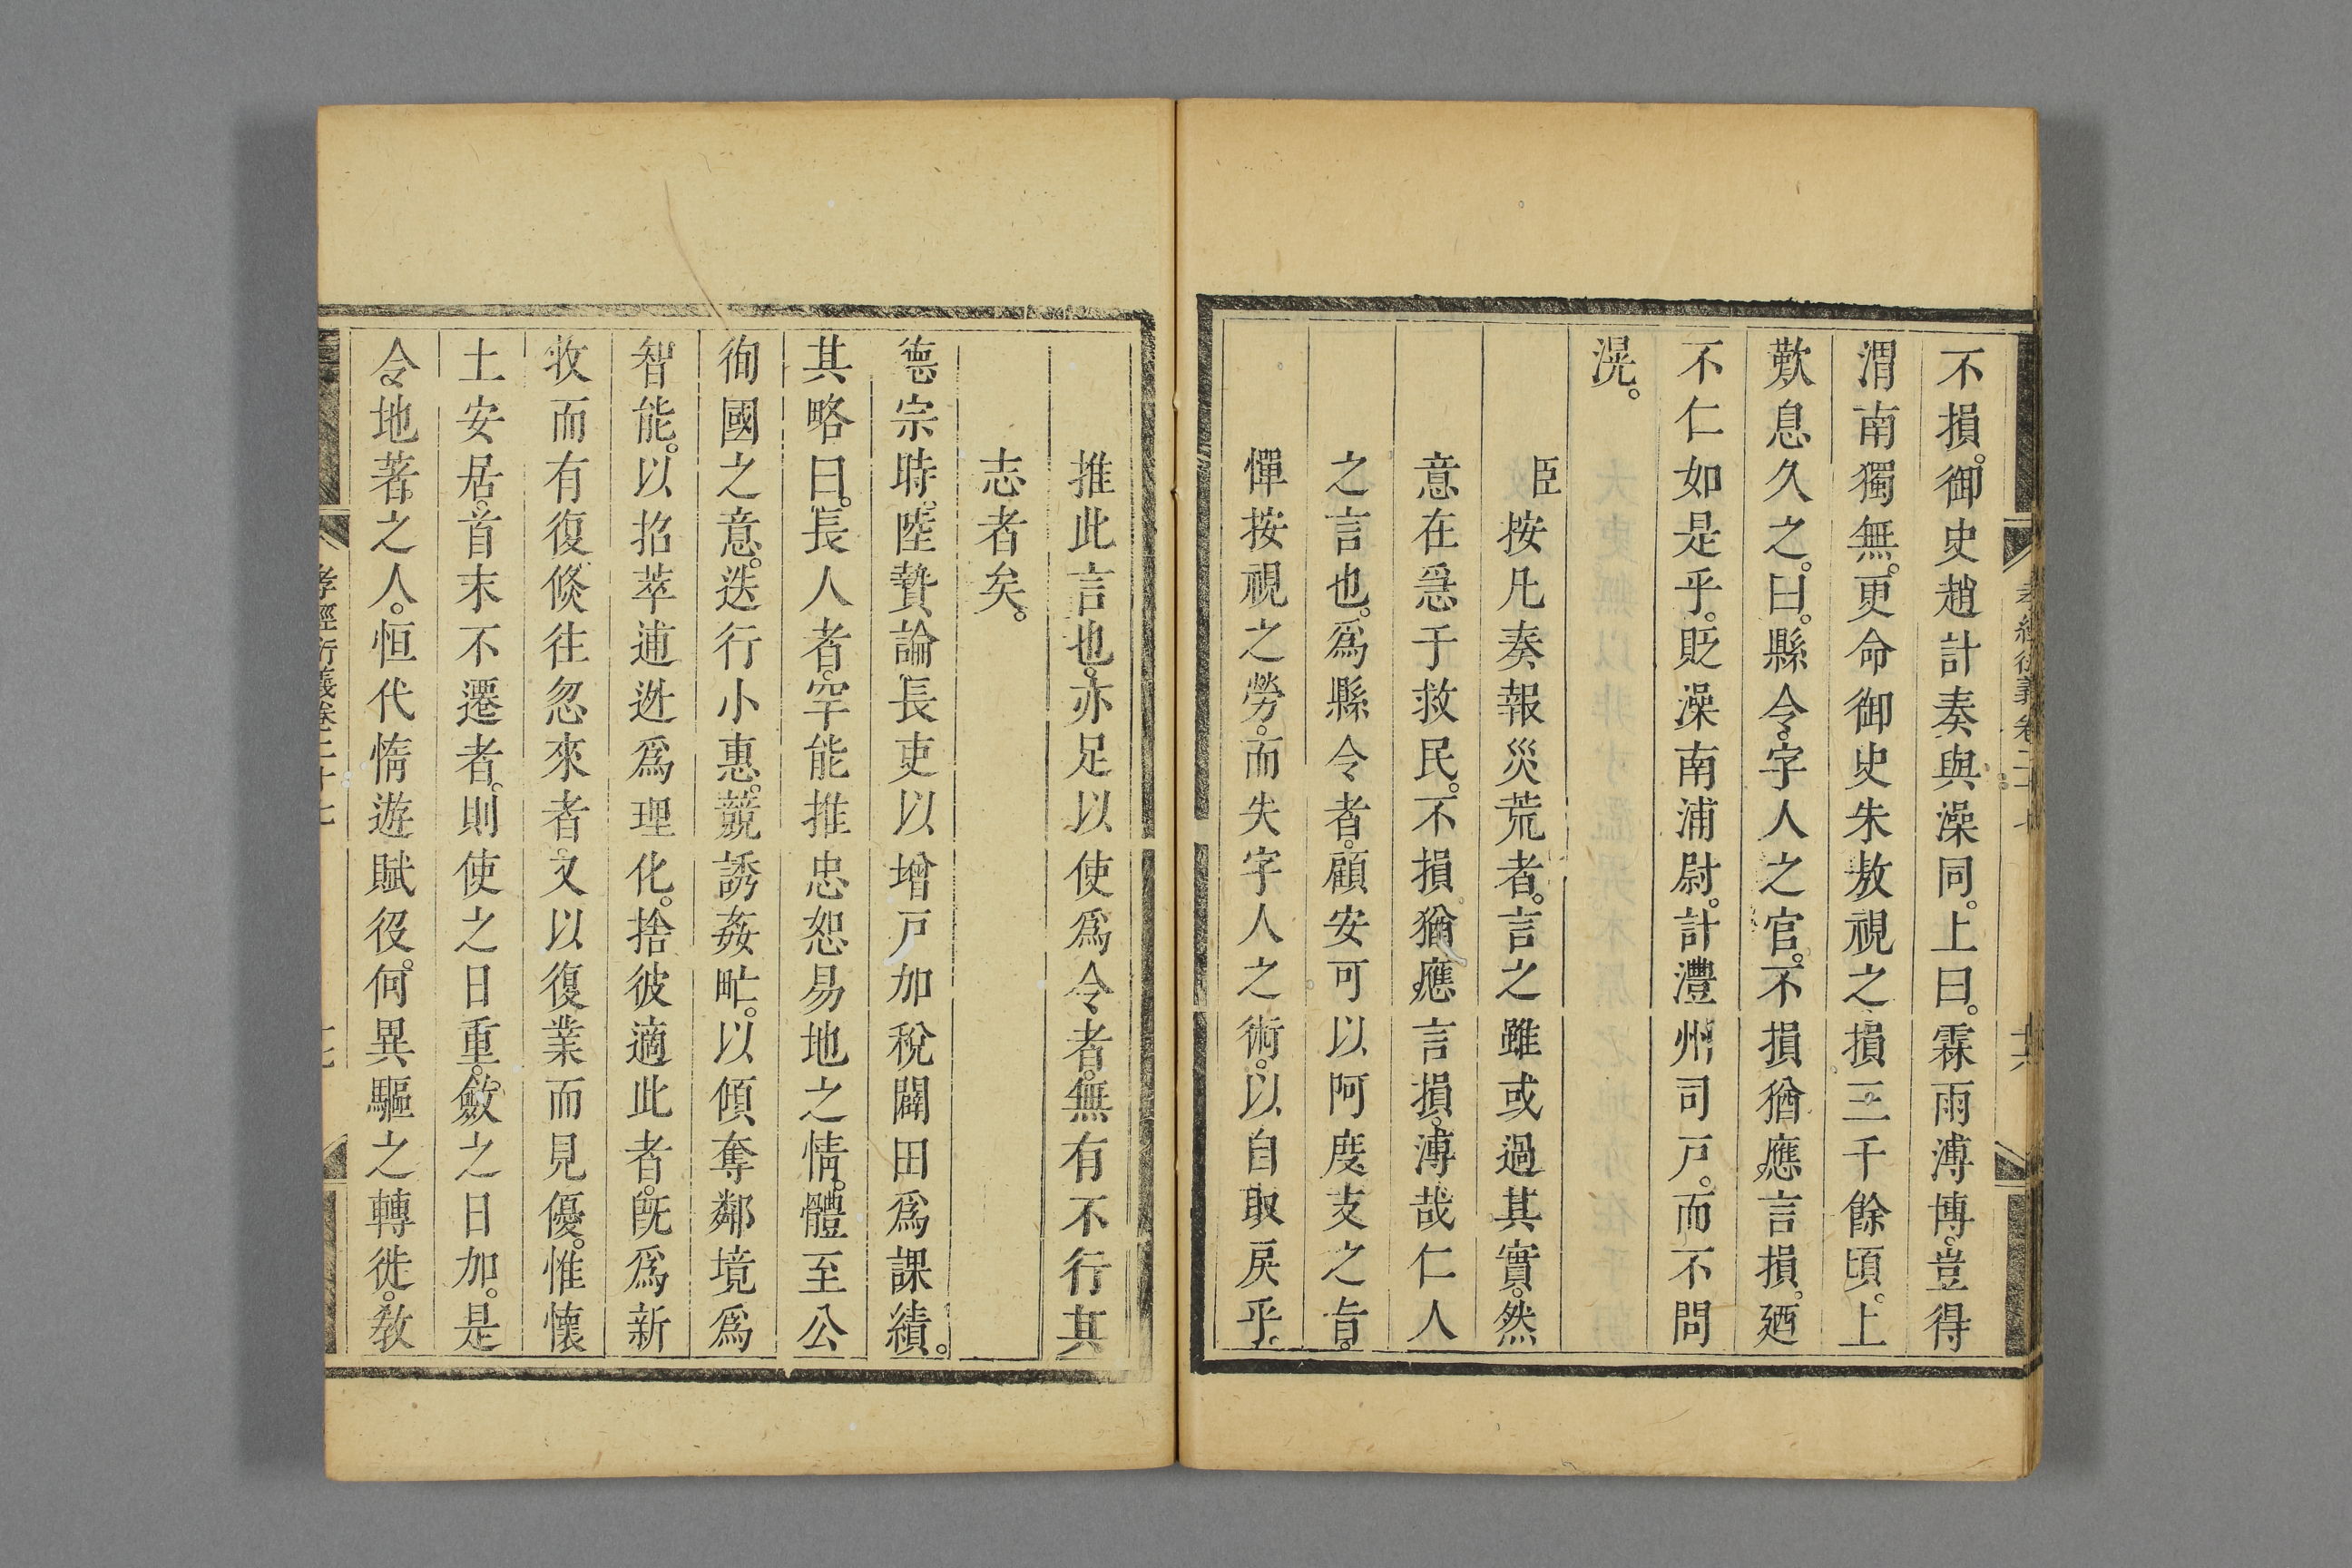 不損。御史趙計奏與澡同。上曰。霖雨溥博。豈得
渭南獨無。更命御史朱敖視之。損三千餘頃。上
歎息久之。曰。縣令。字人之官。不損猶應言損。廼
不仁如是乎。貶澡南浦尉。計澧州司戸。而不問
滉。
臣按凡奏報災荒者。言之雖或過其實。然
意在急于救民。不損猶應言損。溥哉仁人
之言也。爲縣令者。顧安可以阿度支之旨。
憚按視之勞。而失字人之術。以自取戾乎。
孝經衍義卷二十七
推此言也。亦足以使爲令者。無有不行其
志者矣。
德宗時。陸贄論長吏以增戸加稅闢田爲課績。
其略曰。長人者。罕能推忠恕易地之情。體至公
徇國之意。迭行小惠。競誘姦甿。以傾奪鄰境爲
智能。以招萃逋逃爲理化。捨彼適此者。旣爲新
牧而有復。倐往忽來者。又以復業而見優。惟懷
土安居。首末不遷者。則使之日重。斂之日加。是
令地著之人。恒代惰遊賦役。何異驅之轉徙。敎
孝經衍義卷二十七